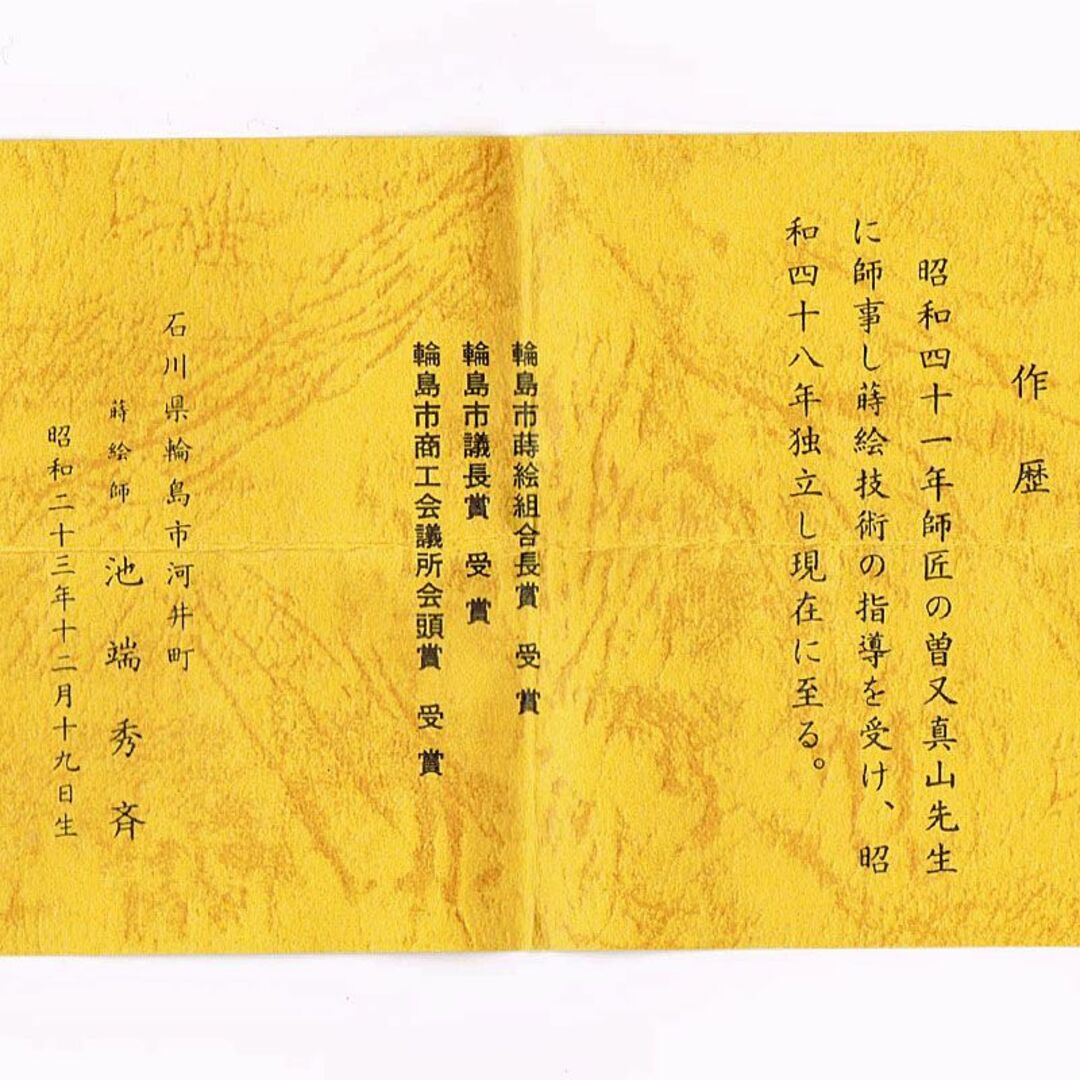 作歴
昭和四十一年師匠の曽又真山先生
に師事し蒔絵技術の指導を受け、昭
和四十八年独立し現在に至る。
輪島市蒔絵組合長賞 受賞
輪島市議長賞 受賞
輪島市商工会議所会頭賞 受賞
石川県輪島市河井町
蒔絵師 池端秀斉
昭和二十三年十二月十九日生